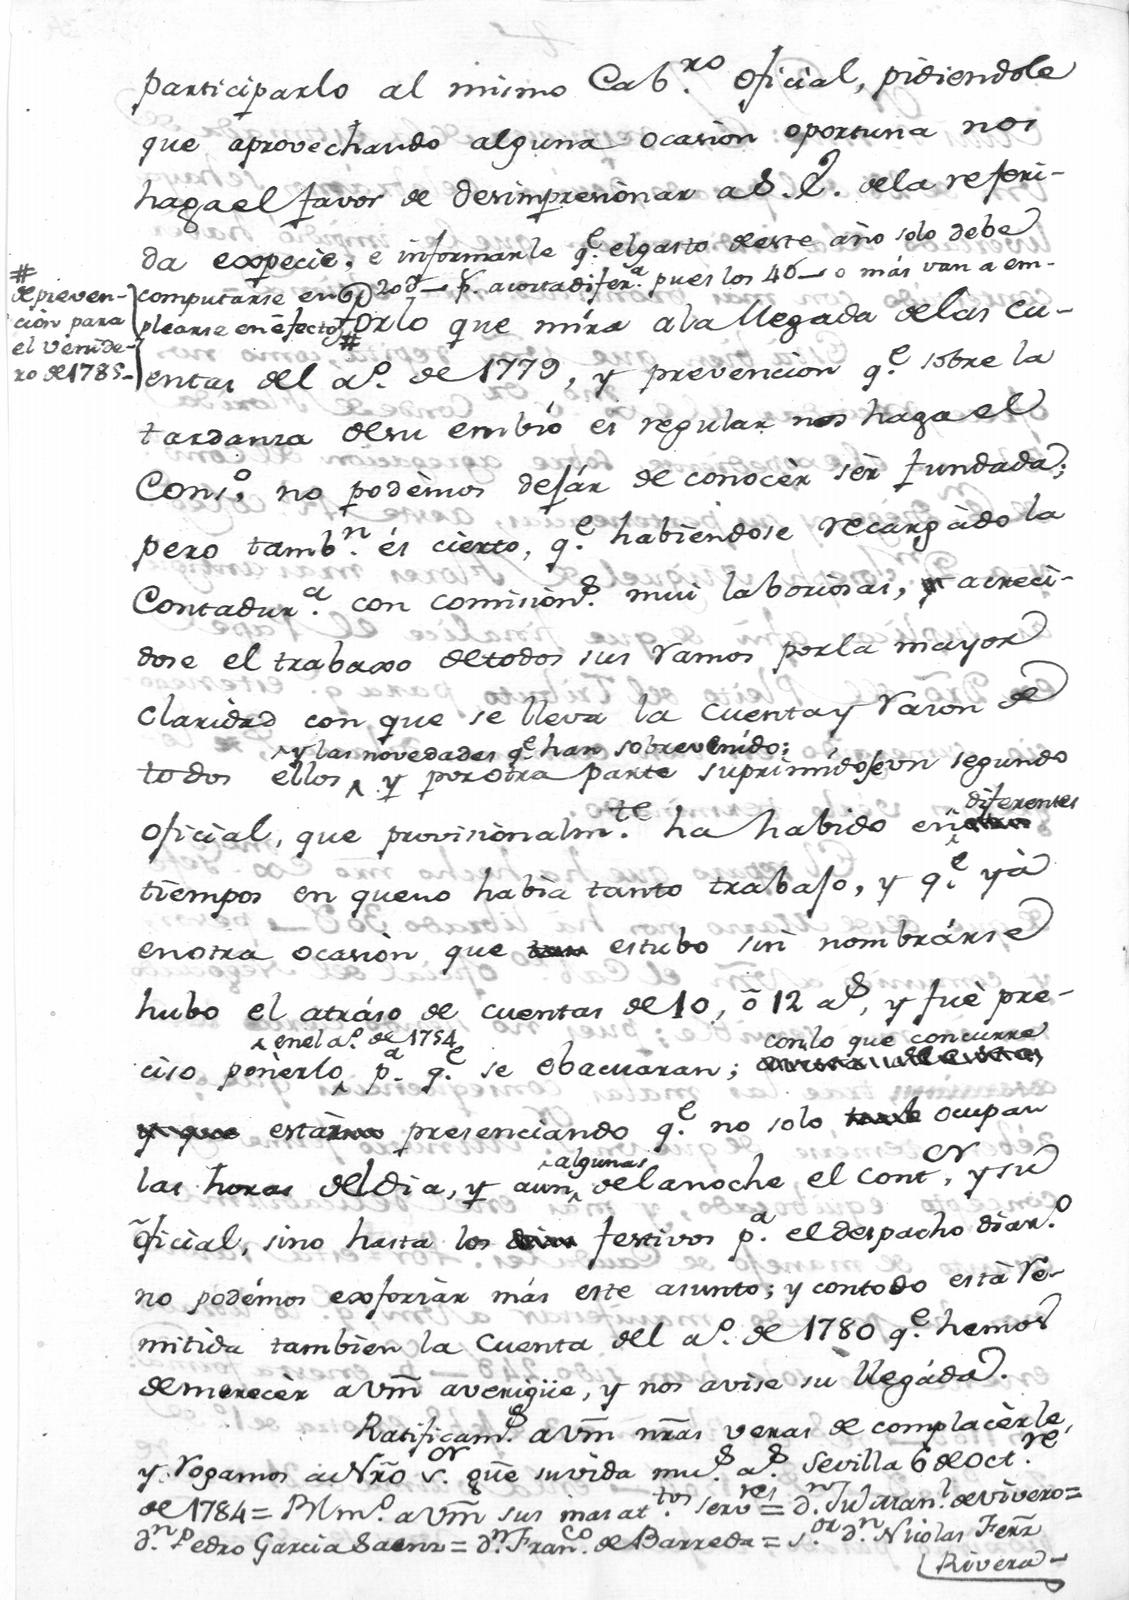 participarlo al mismo Cab.ro Oficial, pidiendole
que aprovechando alguna ocasion oportuna nos
haga el favor de desimpresionar a S. E. de la referi-
da especie, e informarle q.e el gasto de este año solo debe
computarse en 20 p. a corta difer.a pues los 40 o más van a em-
plearse en efecto
#
de preven-
ción para
el venide-
ro de 1785
Por lo que mira a la llegada de las Cu-
entas del a.o de 1779, y prevencion q.e sobre la
tardanza de su embio es regular nos haga el
Cons.o no podèmos dejár de conocèr sèr fundada;
pero tamb.n és cierto, q.e habiendose recargàdo la
Contadur.a con comision.s mui laboriosas, acreci-
dose el trabaxo de todos sus ramos por la mayor
claridad con que se lleva la cuenta y razon de
y las novedades q.e han sobrevenido;
todos ellos, y por otra parte suprimidose un segundo
oficial, que provisionalm.te ha habido en diferentes
tiempos en que no habia tanto trabajo, y q.e yà
en otra ocasiòn que estubo sin nombrárse
hubo el atráso de cuentas de 10, ô 12 a.s, y fuè pre-
en el a.o de 1754 con lo que concurre
ciso ponèrlo p.a q.e se ebacuaran;
estàr presenciando q.e no solo ocupan
las horas del dia, y aun algunas de la noche el Cont.or y su
oficial, sino hasta los festivos p.a el despacho diar.o
no podémos exforzàr más este asunto; y con todo està re-
mitida tambien la Cuenta del a.o de 1780 q.e hemos
de merecèr a Vm averigüe, y nos avise su llegáda.
Ratificam.s a Vm nras veras de complacèrle,
y rogamos a Nro S.or gue su vida mu.s a.s Sevilla 6 de Oct.re
de 1784 = Blm.o a Vm sus mas at.tos serv.res = d.n Ju.n Man.l de Vivero =
d.n Pedro Garcia Saenz = d.n Fran.co de Barreda = s.or d.n Nicolas Ferrz
Rivera